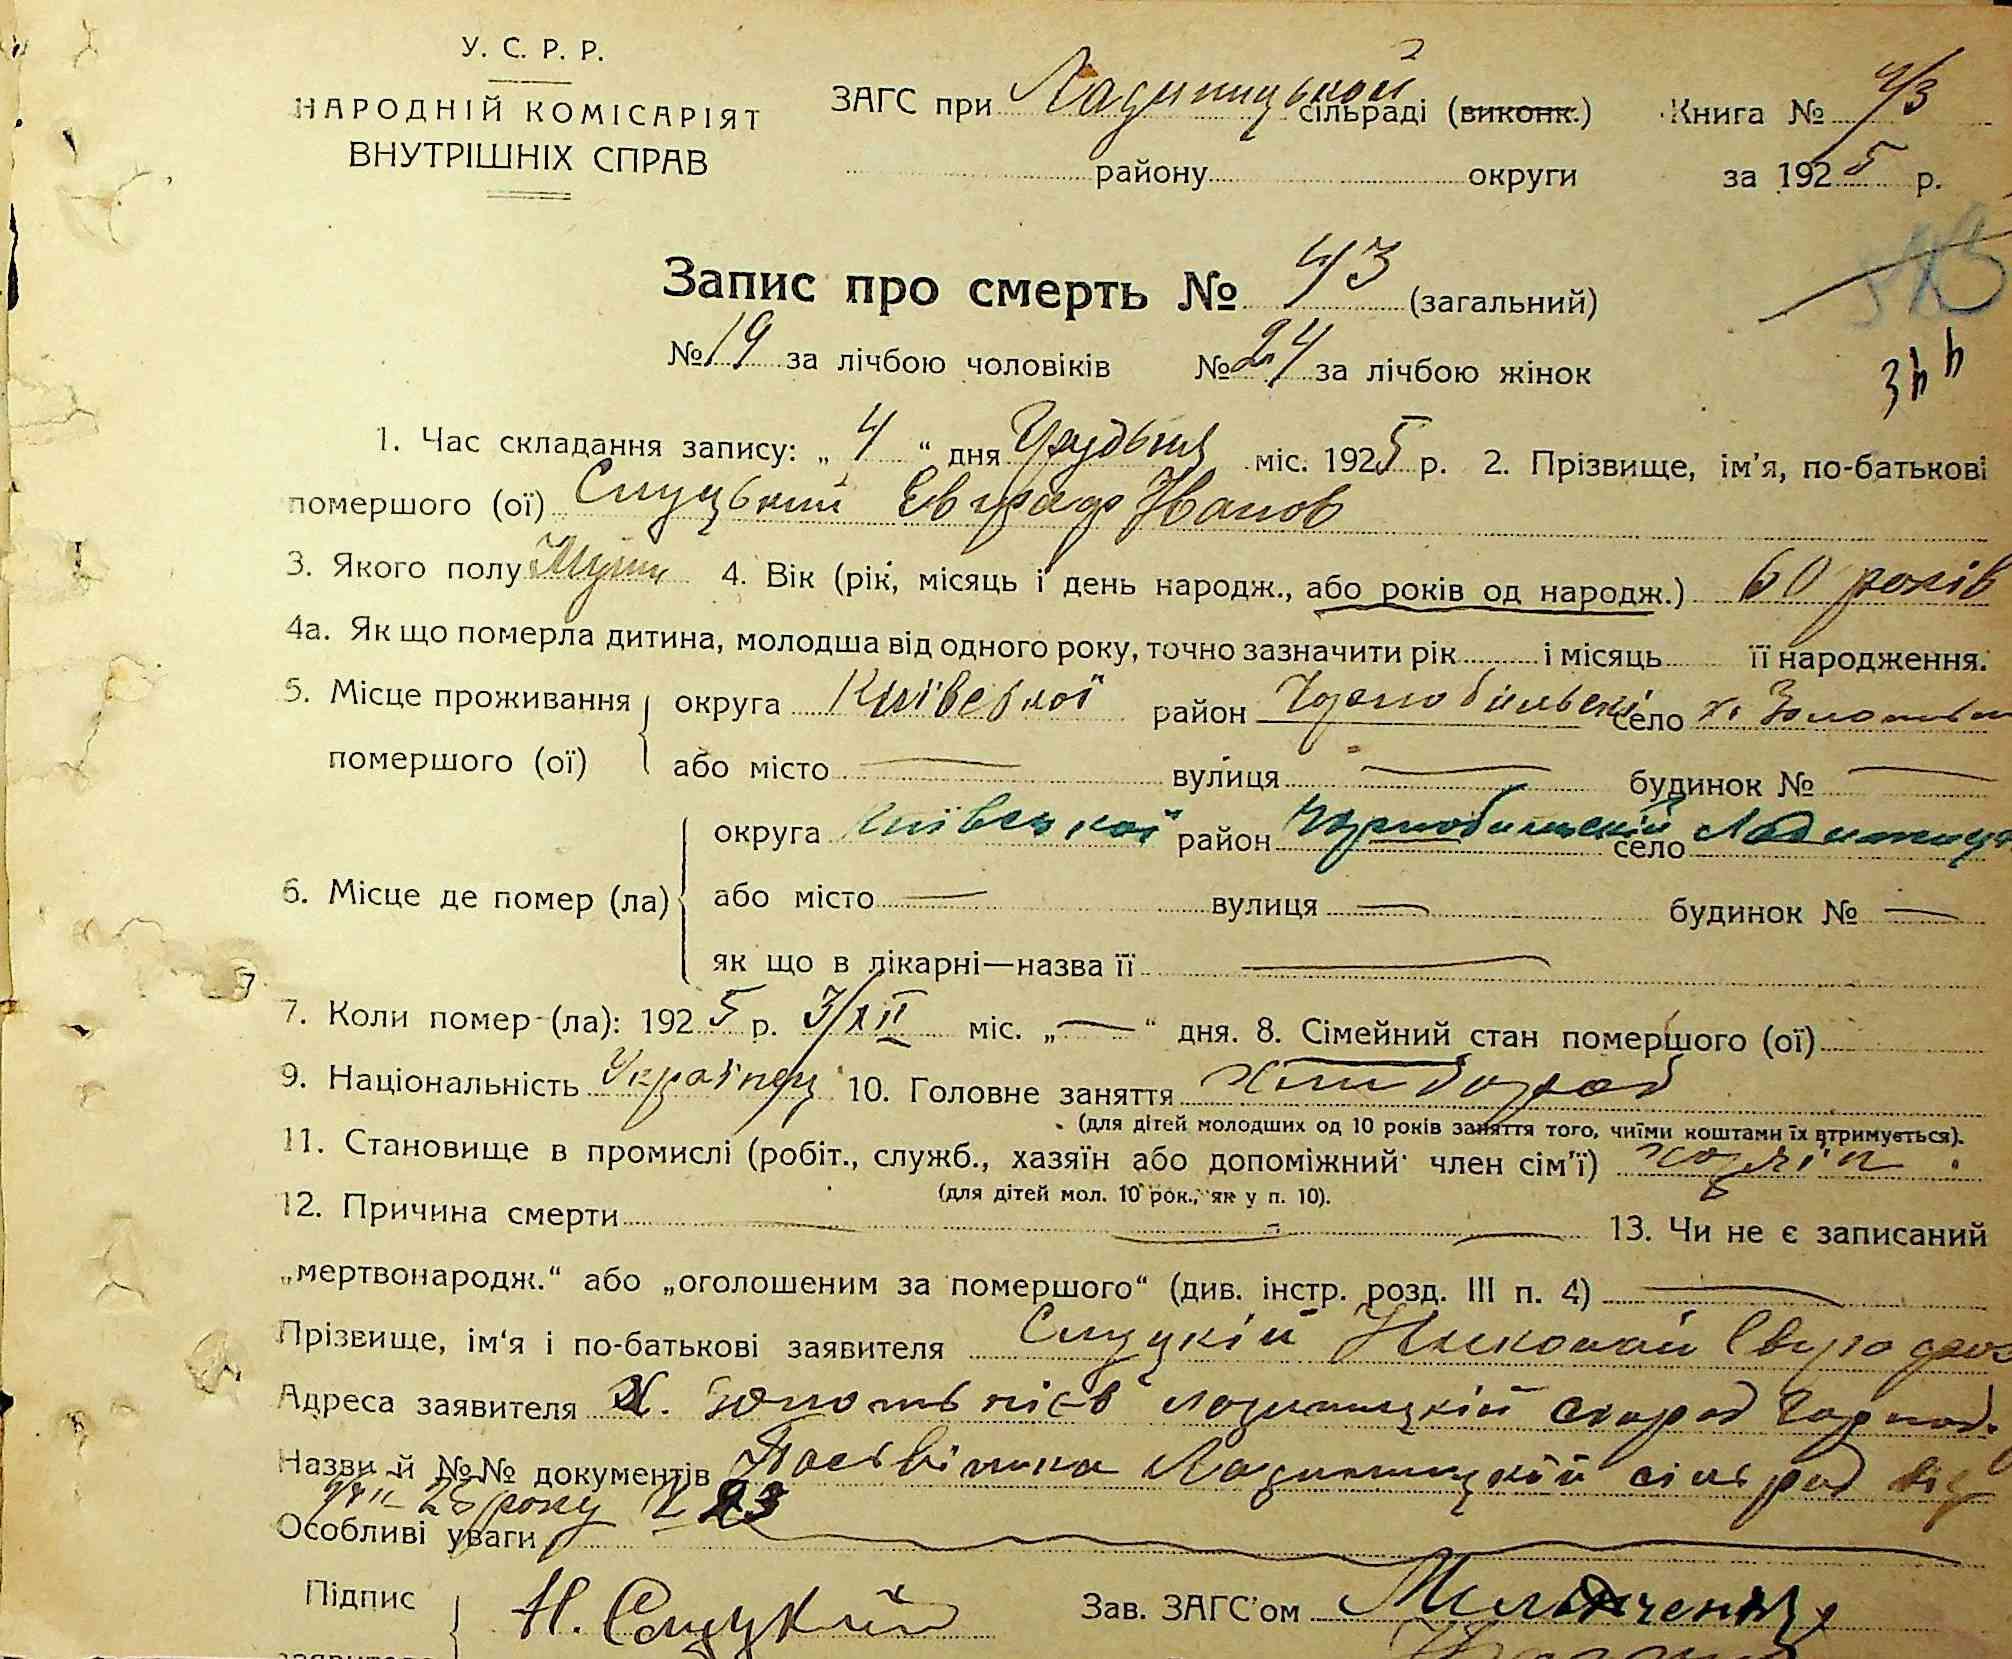 У. С. Р. Р.
НАРОДНІЙ КОМІСАРІЯТ
ВНУТРІШНІХ СПРАВ
ЗАГС при Ладижицькой сільраді (виконк.) Книга № 4/3
району округи за 1925 р.
Запис про смерть № 43 (загальний)
№ 19 за лічбою чоловіків № 24 за лічбою жінок
344
1. Час складання запису: „ 4 “ дня Грудьня міс. 1925 р. 2. Прізвище, ім'я, по-батькові
помершого (ої) Слуцький Евграф Іванов
3. Якого полу Муж 4. Вік (рік, місяць і день народж., або років од народж.) 60 років
4а. Як що померла дитина, молодша від одного року, точно зазначити рік і місяць її народження.
5. Місце проживання помершого (ої) округа Київської район Чорнобильскі село х. Золотнів
або місто — вулиця — будинок № —
6. Місце де помер (ла) округа Київської район Чорнобильскій село Ладижичі
або місто — вулиця — будинок № —
як що в лікарні—назва її —
7. Коли помер (ла): 1925 р. 3/XII міс. „—“ дня. 8. Сімейний стан помершого (ої)
9. Національність Українец 10. Головне заняття Хлібороб
(для дітей молодших од 10 років заняття того, чиїми коштами їх втримується).
11. Становище в промислі (робіт., служб., хазяїн або допоміжний член сім'ї) хозяїн
(для дітей мол. 10 рок., як у п. 10).
12. Причина смерти — 13. Чи не є записаний
„мертвонародж.“ або „оголошеним за помершого“ (див. інстр. розд. III п. 4) —
Прізвище, ім'я і по-батькові заявителя Слуцкій Николай
Адреса заявителя х. Ладижицкій
Назви й №№ документів Посвідчика Ладижицкой сільрад від
25 року
Особливі уваги
Підпис Н. Слуцкій Зав. ЗАГС'ом
заявителя